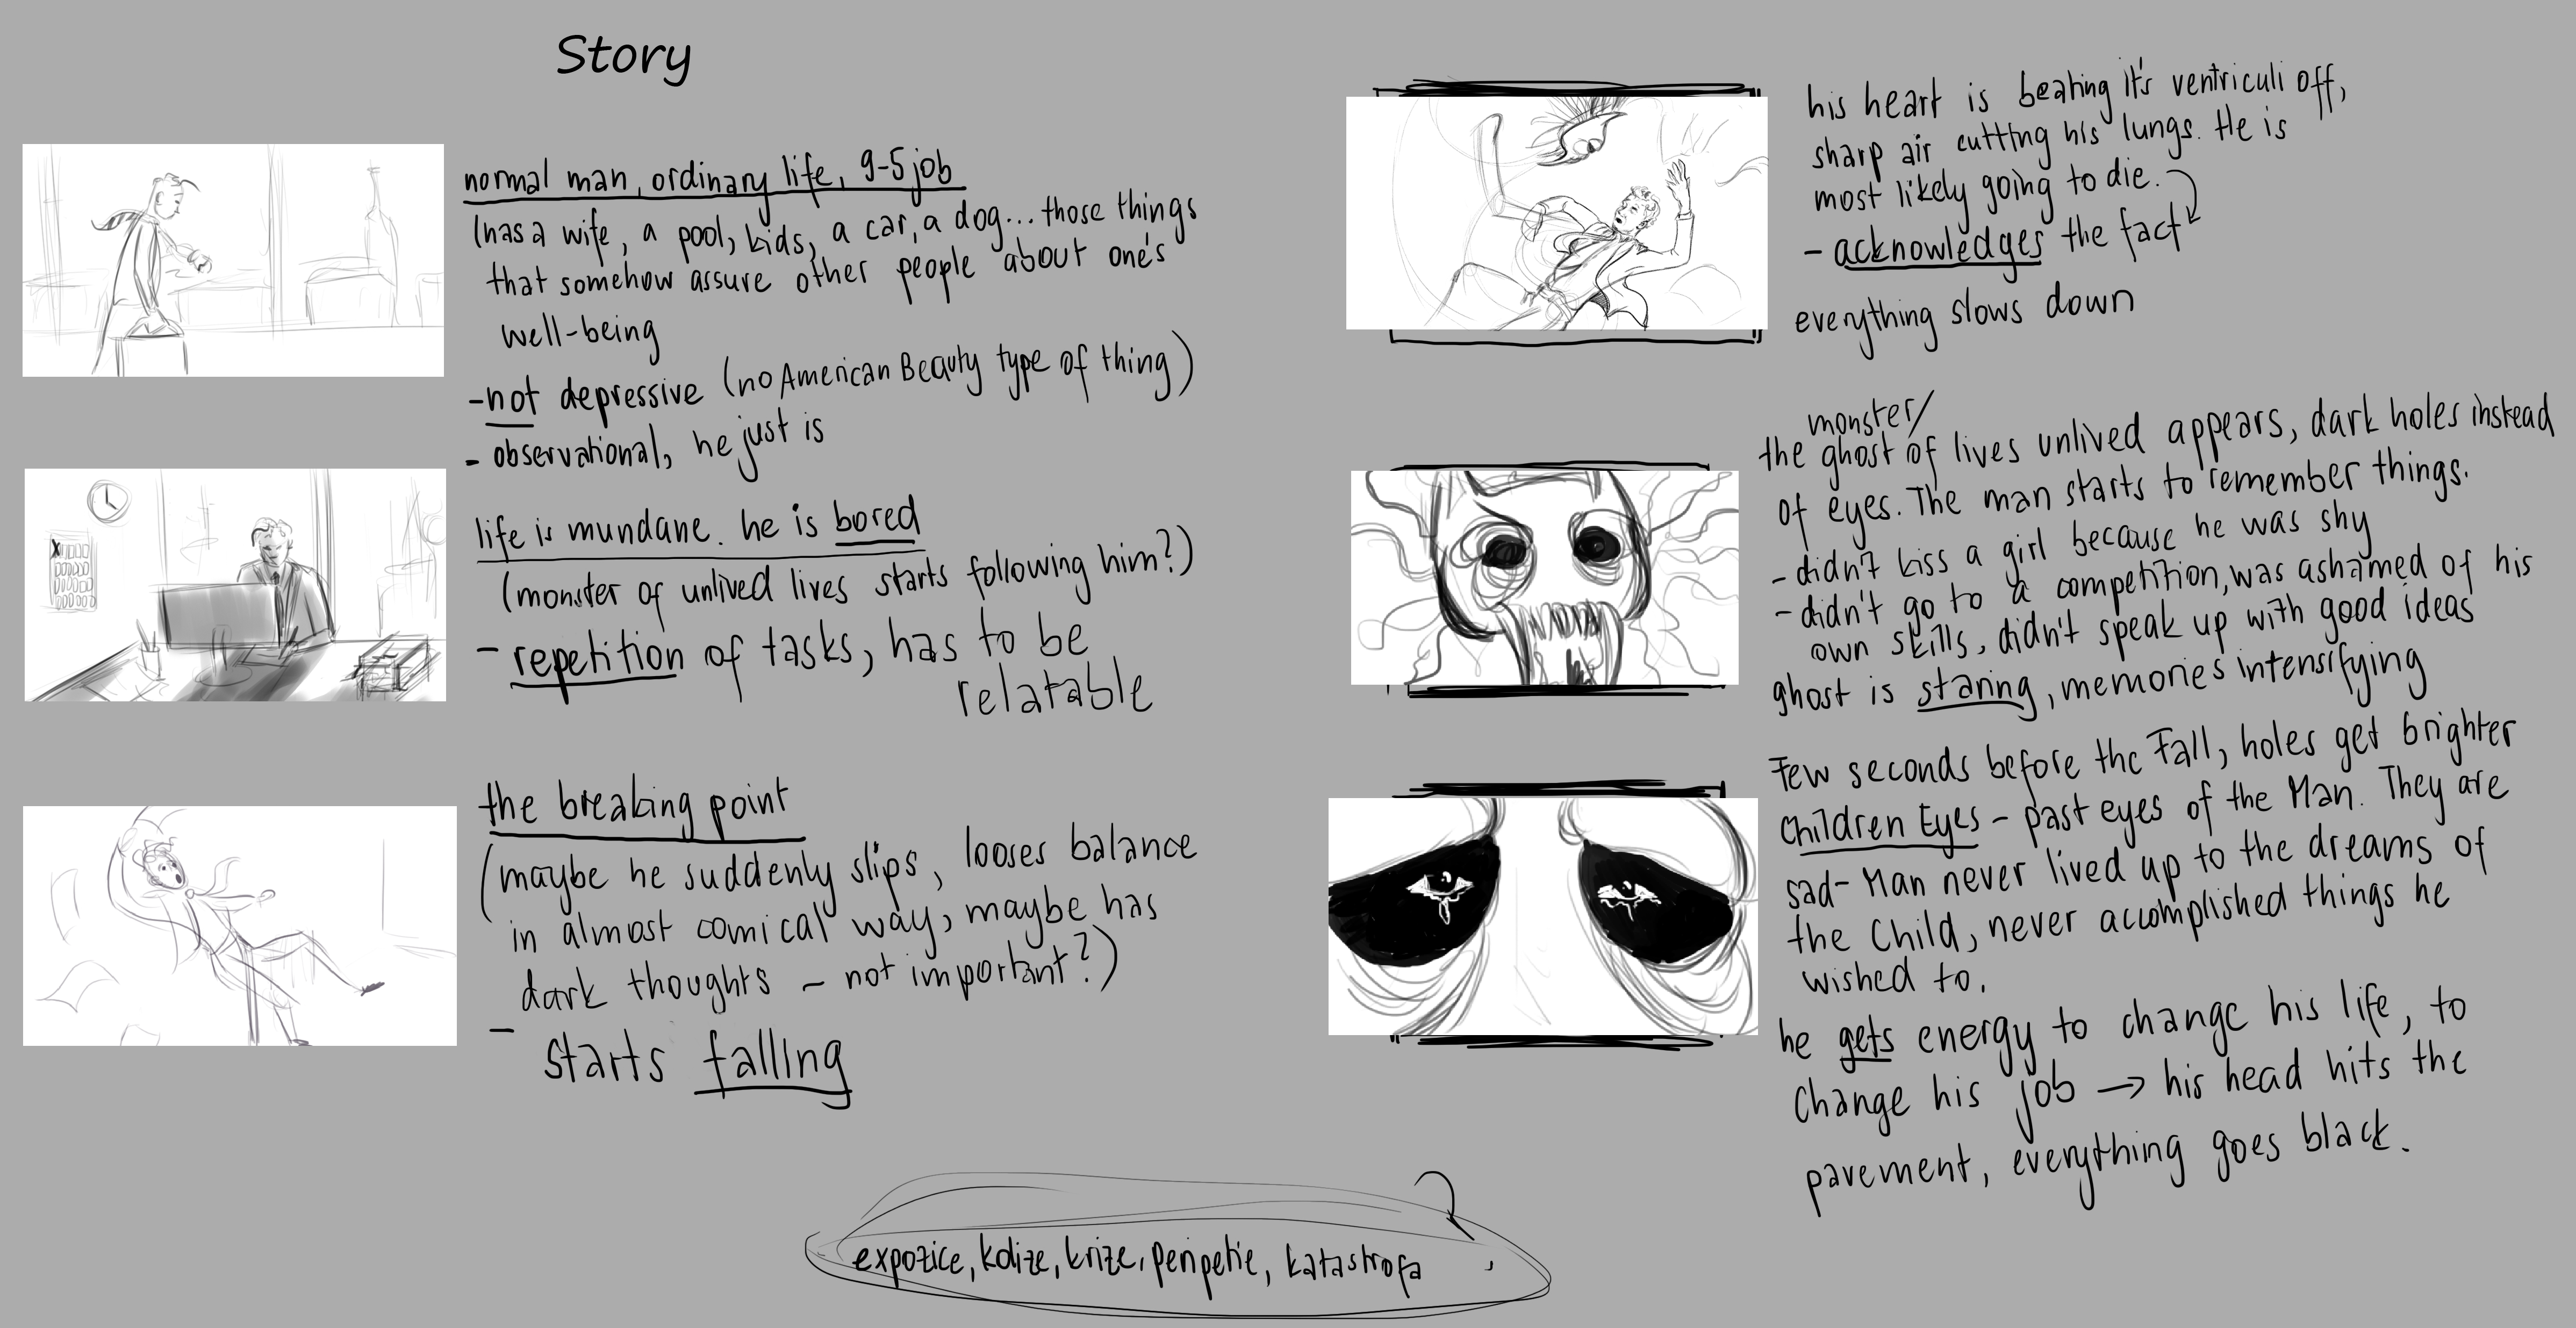 Story
normal man, ordinary life, 9-5 job
(has a wife, a pool, kids, a car, a dog... those things
that somehow assure other people about one's
well-being
-not depressive (no American Beauty type of thing)
- observational, he just is
life is mundane. he is bored
(monster of unlived lives starts following him?)
- repetition of tasks, has to be
relatable
the breaking point
(maybe he suddenly slips, looses balance
in almost comical way, maybe has
dark thoughts - not important?)
-
starts falling
his heart is beating it's ventriculi off,
sharp air cutting his lungs. He is
most likely going to die.
- acknowledges the fact
everything slows down
monster/
the ghost of lives unlived appears, dark holes instead
of eyes. The man starts to remember things.
- didn't kiss a girl because he was shy
- didn't go to a competition, was ashamed of his
own skills, didn't speak up with good ideas
ghost is staring, memories intensifying
Few seconds before the Fall, holes get brighter
Children Eyes - past eyes of the Man. They are
sad - Man never lived up to the dreams of
the Child, never accomplished things he
wished to.
he gets energy to change his life, to
change his job → his head hits the
pavement, everything goes black.
expozice, kolize, krize, peripetie, katastrofa